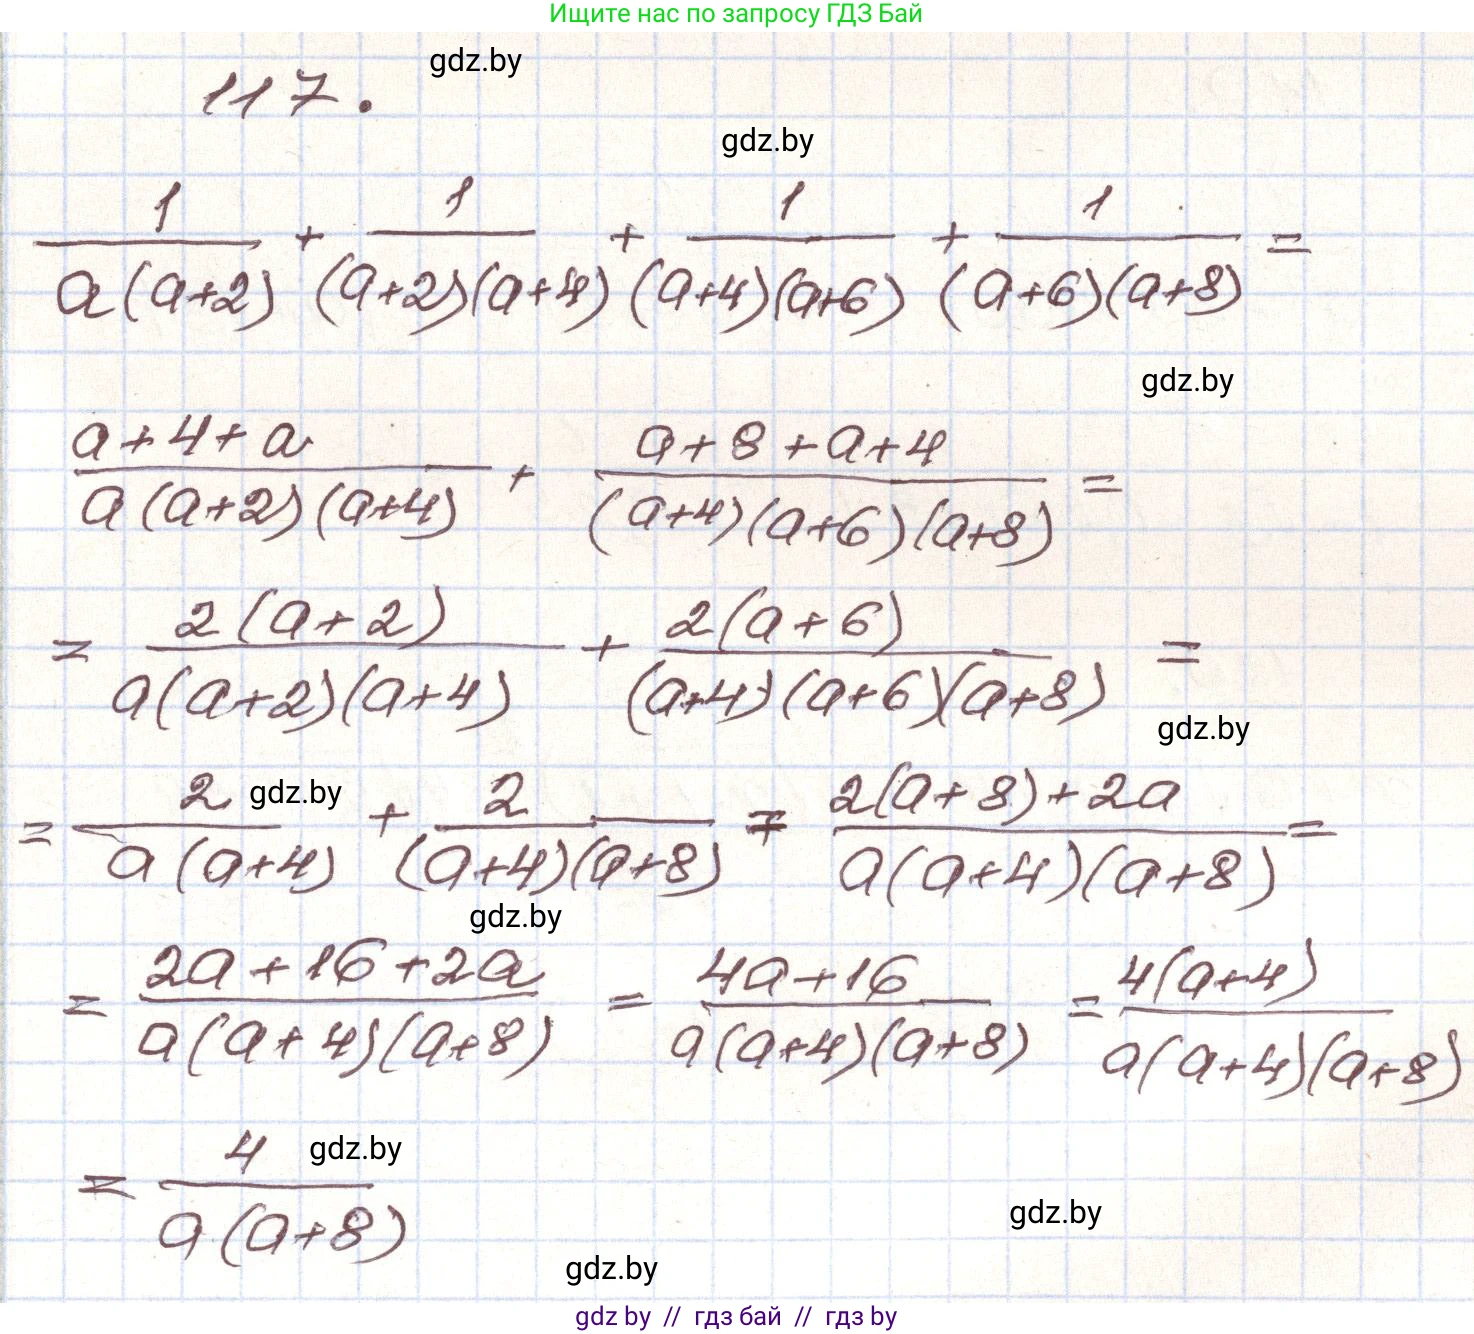 Ищите нас по запросу ГДЗ Бай
gdz.by
117.
gdz.by
1/(a(a+2)) + 1/((a+2)(a+4)) + 1/((a+4)(a+6)) + 1/((a+6)(a+8)) =
gdz.by
(a+4+a)/(a(a+2)(a+4)) + (a+8+a+4)/((a+4)(a+6)(a+8)) =
= 2(a+2)/(a(a+2)(a+4)) + 2(a+6)/((a+4)(a+6)(a+8)) =
gdz.by
= 2/(a(a+4)) + 2/((a+4)(a+8)) = (2(a+8)+2a)/(a(a+4)(a+8)) =
gdz.by
gdz.by
= (2a+16+2a)/(a(a+4)(a+8)) = (4a+16)/(a(a+4)(a+8)) = 4(a+4)/(a(a+4)(a+8))
= 4/(a(a+8))
gdz.by
gdz.by
gdz.by
gdz by // гдз бай // гдз by